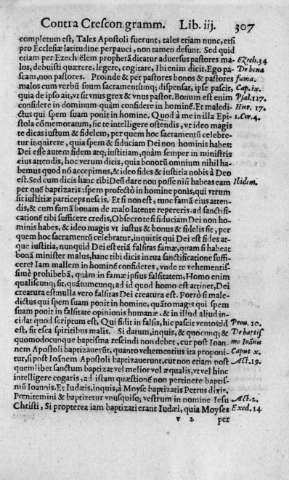 Contra Crescon.gramm. Lib. iij. 307
completum est, Tales Apostoli fuerunt: tales etiam nunc, etsi
pro Ecclesiæ latitudine perpauci, non tamen desunt. Sed quid
etiam per Ezechielem propheta dicatur aduersus pastores ma- Ezech.34
los, debuisti quærere, legere, cogitare, Ibi enim dicit. Ego pa- De bona
scam, non pastores. Proinde & per pastores bonos & pastores fama.
malos cum verbū suum sacramentumq; dispensat, ipse pascit, Cap.ix.
quia de ipsis ait, vt sit vnus grex & vnus pastor. Bonum est enim Psal.117.
confidere in dominum quàm confidere in homine. Et maledi- Hier. 17.
ctus qui spem suam ponit in homine. Quod à me in illa Epi- 1.Cor.4.
stola cōmemoratum, sic te intelligere ostendis, vt ideo magis
te dicas iustum & fidelem, per quem hoc sacramentum celebre-
tur inquirere, quia spem & fiduciam Dei non hominis habes:
Dei est autem fidem atq; iustitiam, quam semper in ministris
eius attendis, hoc verum dicis, quia bonorū omnium nihil ha-
bemus quod non accepimus, & ideo fides & iustitia nobis à Deo
est. Sed cum dicis hanc tibi Deū dare non posse nisi habeas eam Ibidem.
per quē baptizaris: spem profectò in homine ponis, qui vtrum
sit iustitiæ particeps nescis. Et si non est, tunc famā eius atten-
dis, & cum famā bonam de malo latente repereris. ad sanctifi-
cationē tibi sufficere credis, Obsecro te si fiduciam Dei non ho-
minis habes, & ideo magis vt iustus & bonus & fidelis sit, per
quem hoc sacramentū celebratur, inquiris qui Dei est fides at-
que iustitia, nunquid Dei est etiā falsitas famæ, quam si habeat
bonā minister malus, hanc tibi dicis in tua sanctificatione suffi-
cere? Iam mallem in homine confideres, vnde te vehementis-
simè prohibebā, quàm in famæ ipsius falsitatem. Homo enim
qualiscumq; sit, quātumcumq; ad id quod homo est attinet, Dei
creatura est: nulla vero falsitas Dei creatura est. Porrò si male-
dictus qui spem suam ponit in homine, quāto magis qui spem
suam ponit in falsitate opinionis humanæ. & in illud aliud in-
cidat quod scriptum est, Qui fidit in falsis, hic pascit ventos: id Prou.10.
est, fit esca spiritibus malis. Si darum, inquis, & quocumq; & De heres
quomodocunque baptisma rescindi non debet, cur post Ioan-
nem Apostoli baptizauerūt, quanto vehementius ita proponi- Caput x.
tur, si post Iohannem Apostoli baptizauerunt, cur non etiam post Act.19.
quemlibet sanctum baptizaret vel melior vel æqualis, vt vel hinc
intelligere cogaris, ad istam quæstionē non pertinere baptis-
mū Ioannis: Et Iudæis, inquis, à Moyse baptizatis Petrus dixit,
Pœnitemini & baptizetur vnusquisq; vestrum in nomine Iesu Act.2.
Christi, Si propterea iam baptizati erant Iudæi, quia Moyses Exod.14
v 2 per